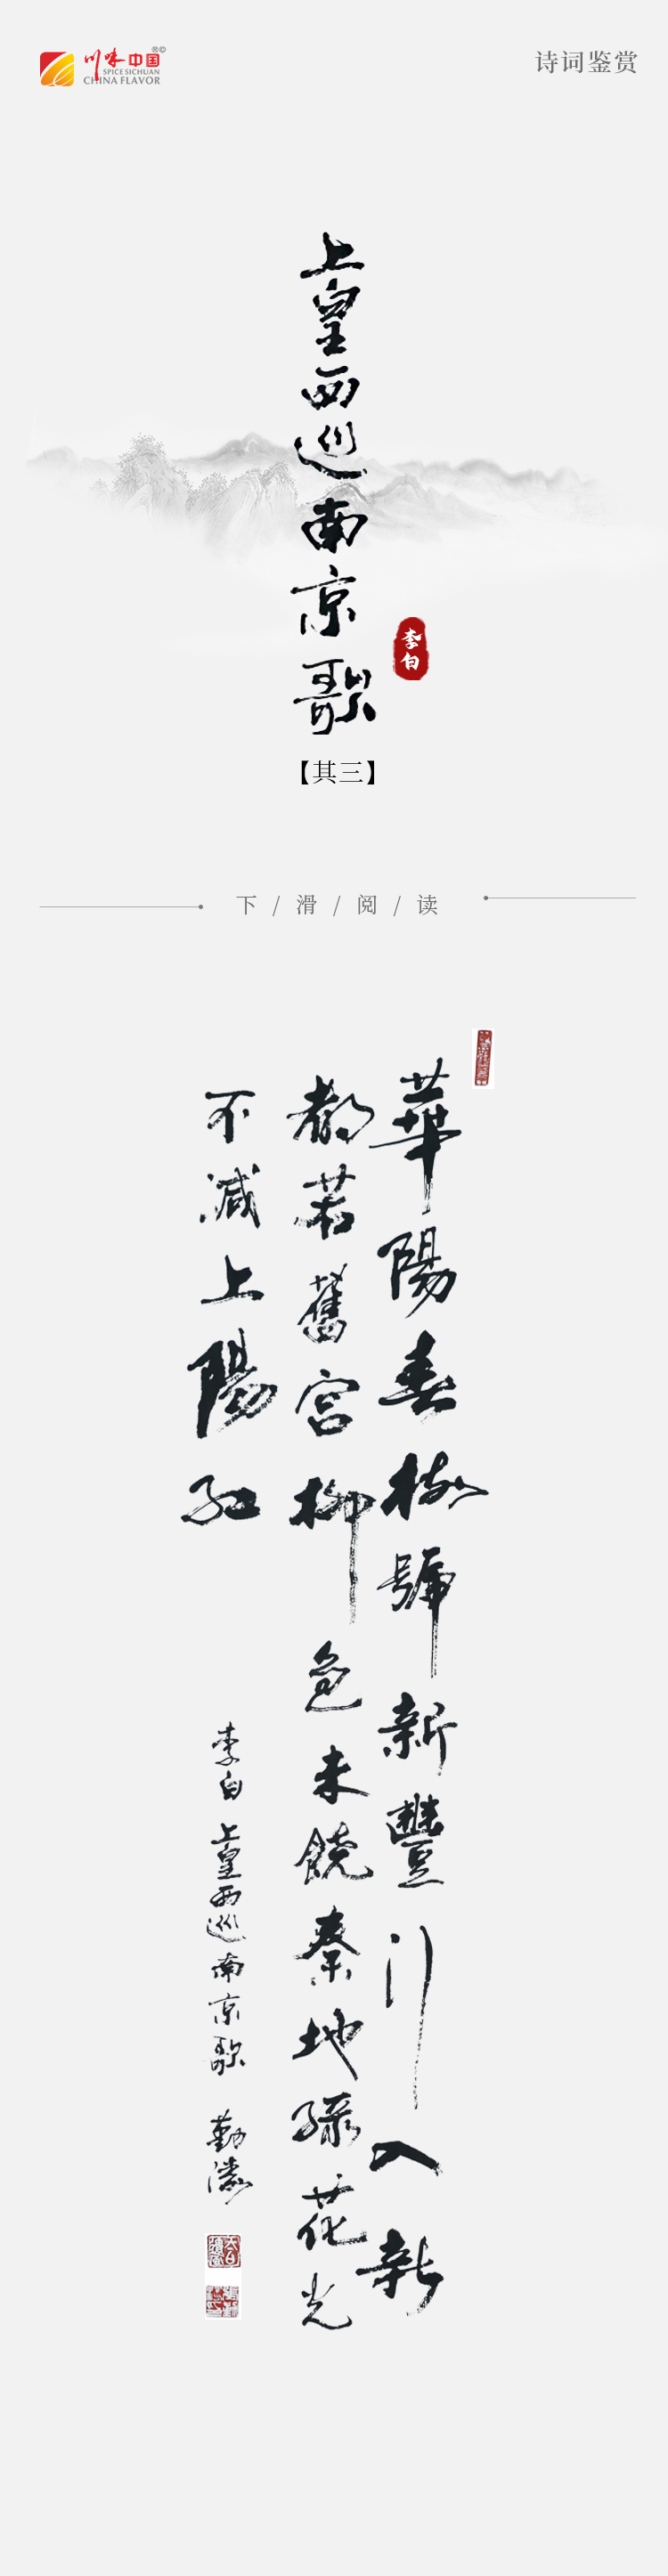 川味中国®©
SPICE SICHUAN
CHINA FLAVOR
诗词鉴赏
上皇西巡南京歌
李白
【其三】
下/滑/阅/读
華陽春樹號新豐行入新
都若舊宮柳色未饒秦地綠花光
不減上陽紅
李白上皇西巡南京歌 勤